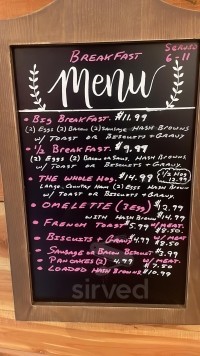 BREAKFAST
SERVED
6-11
Menu
• BIG BREAKFAST. $11.99
(2) EGGS (2) BACON (2) SAUSAGE HASH BROWNS
W/ TOAST OR BISCUITS & GRAVY
• 1/2 BREAKFAST. $9.99
(2) EGGS (2) BACON OR SAUS. HASH BROWNS
W/ TOAST OR BISCUITS & GRAVY.
• THE WHOLE HOG. $14.99
1/2 HOG
12.99
LARGE COUNTRY HAM (2) EGGS HASH BROWNS
W/ TOAST OR BISCUITS & GRAVY.
• OMELETTE (3 EGG) $12.99
WITH HASH BROWN $14.99
• FRENCH TOAST $5.99 W/ MEAT.
$8.50.
• BISCUITS & GRAVY $4.99 W/ MEAT
$8.50
• SAUSAGE OR BACON BISCUIT $3.99
• PANCAKES (2) 4.99 W/ MEAT.
$7.50
• LOADED HASH BROWNS $10.99
sirved